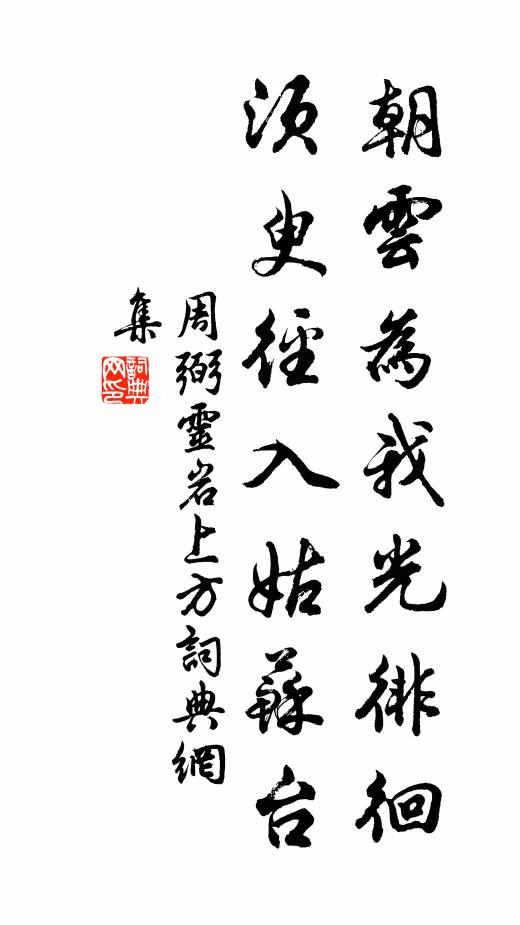 朝雲為我光徘徊
須臾徑入姑蘇台
周弼靈岩上方詞典網
集
詞典網印